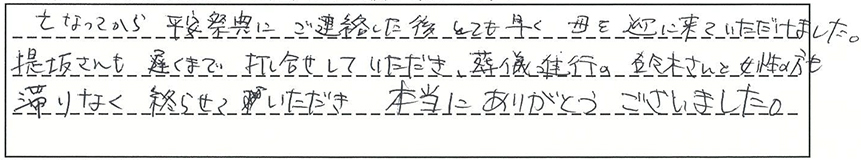 亡なってから 平安祭典に ご連絡した後 とても早く 母を 迎に来ていただけました。
提坂さんも 遅くまで 打ち合せしていただき、葬儀進行の 鈴木さんと女性の方も
滞りなく 終らせて いただき 本当に ありがとう ございました。